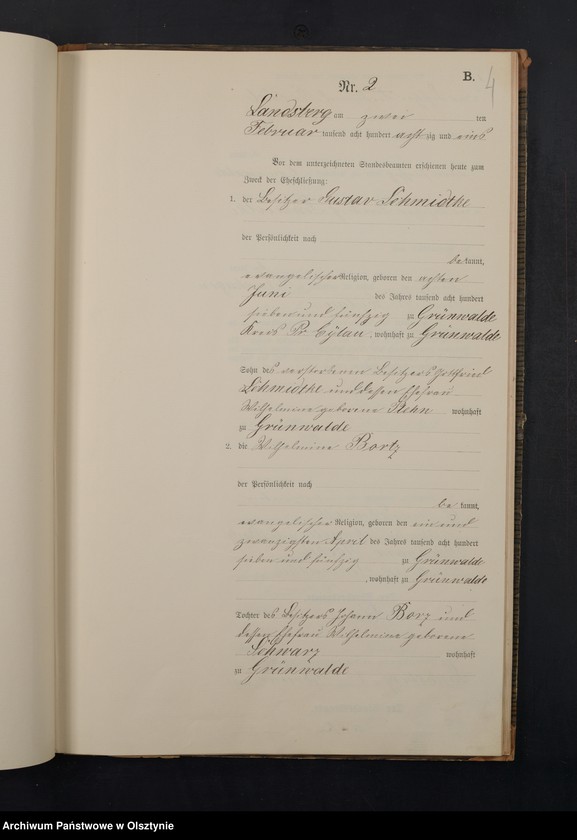 B.
4
Nr. 2
Landsberg am zwei ten
Februar tausend acht hundert acht zig und eins
Vor dem unterzeichneten Standesbeamten erschienen heute zum
Zweck der Eheschließung:
1. der Besitzer Gustav Schmidtke
der Persönlichkeit nach
be kannt,
evangelischer Religion, geboren den achten
Juni des Jahres tausend acht hundert
sieben und fünfzig zu Grünwalde
Kreis Pr. Eylau, wohnhaft zu Grünwalde
Sohn des verstorbenen Besitzers Gottfried
Schmidtke und dessen Ehefrau
Wilhelmine geborene wohnhaft
zu Grünwalde
2. die Wilhelmine Bortz
der Persönlichkeit nach
be kannt,
evangelischer Religion, geboren den ein und
zwanzigsten April des Jahres tausend acht hundert
sieben und fünfzig zu Grünwalde
, wohnhaft zu Grünwalde
Tochter des Besitzers Johann Borz und
dessen Ehefrau Wilhelmine geborene
Schwarz wohnhaft
zu Grünwalde
Archiwum Państwowe w Olsztynie